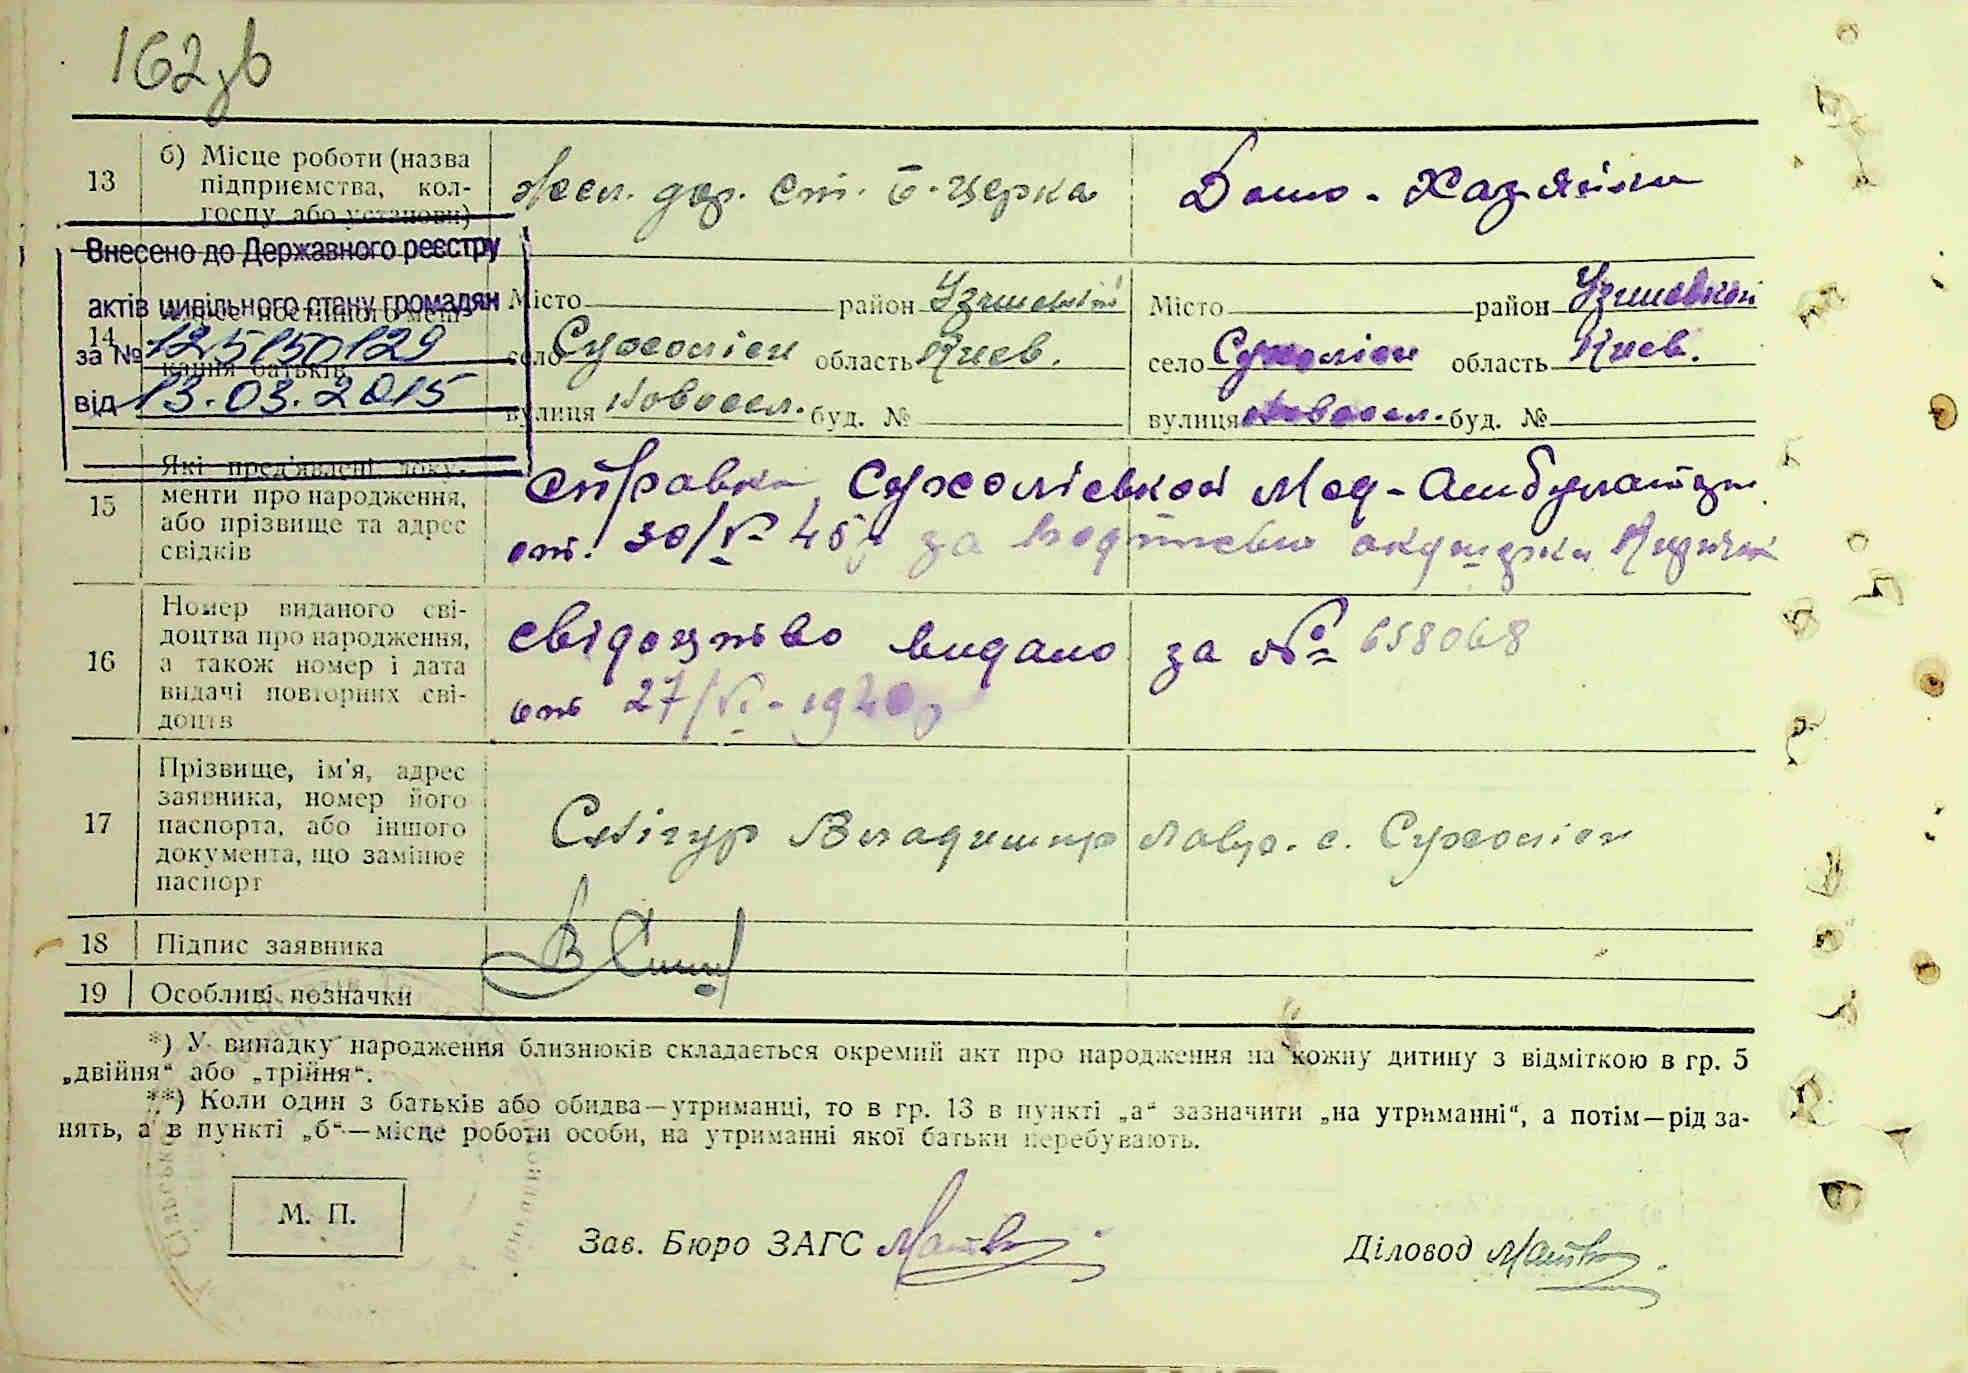 162зв
13
б) Місце роботи (назва
підприємства, кол-
госпу або установи)
Жел. дор. ст. Б-Церка
Домо-Хазяйка
Внесено до Державного реєстру
актів цивільного стану громадян
за № 125150129
від 13.03.2015
14
Місто район Узинский
село Сухолісы область Киев.
вулиця Новосел. буд. №
Місто район Узинсвкой
село Сухолісы область Киев.
вулиця Новосел. буд. №
15
Які пред'явлені доку-
менти про народження,
або прізвище та адрес
свідків
Справка Сухолієвкой Мед-Амбулатории
от. 30/V- 45р за акушерки
16
Номер виданого сві-
доцтва про народження,
а також номер і дата
видачі повторних сві-
доцтв
свідоцтво видано за № 658068
от 27/VI-
17
Прізвище, ім'я, адрес
заявника, номер його
паспорта, або іншого
документа, що замінює
паспорт
Снігур Владимир Лавр. с. Сухоліси
18
Підпис заявника
19
Особливі позначки
*) У випадку народження близнюків складається окремий акт про народження на кожну дитину з відміткою в гр. 5
„двійня“ або „трійня“.
**) Коли один з батьків або обидва—утриманці, то в гр. 13 в пункті „а“ зазначити „на утриманні“, а потім—рід за-
нять, а в пункті „б“—місце роботи особи, на утриманні якої батьки перебувають.
М. П.
Зав. Бюро ЗАГС
Діловод